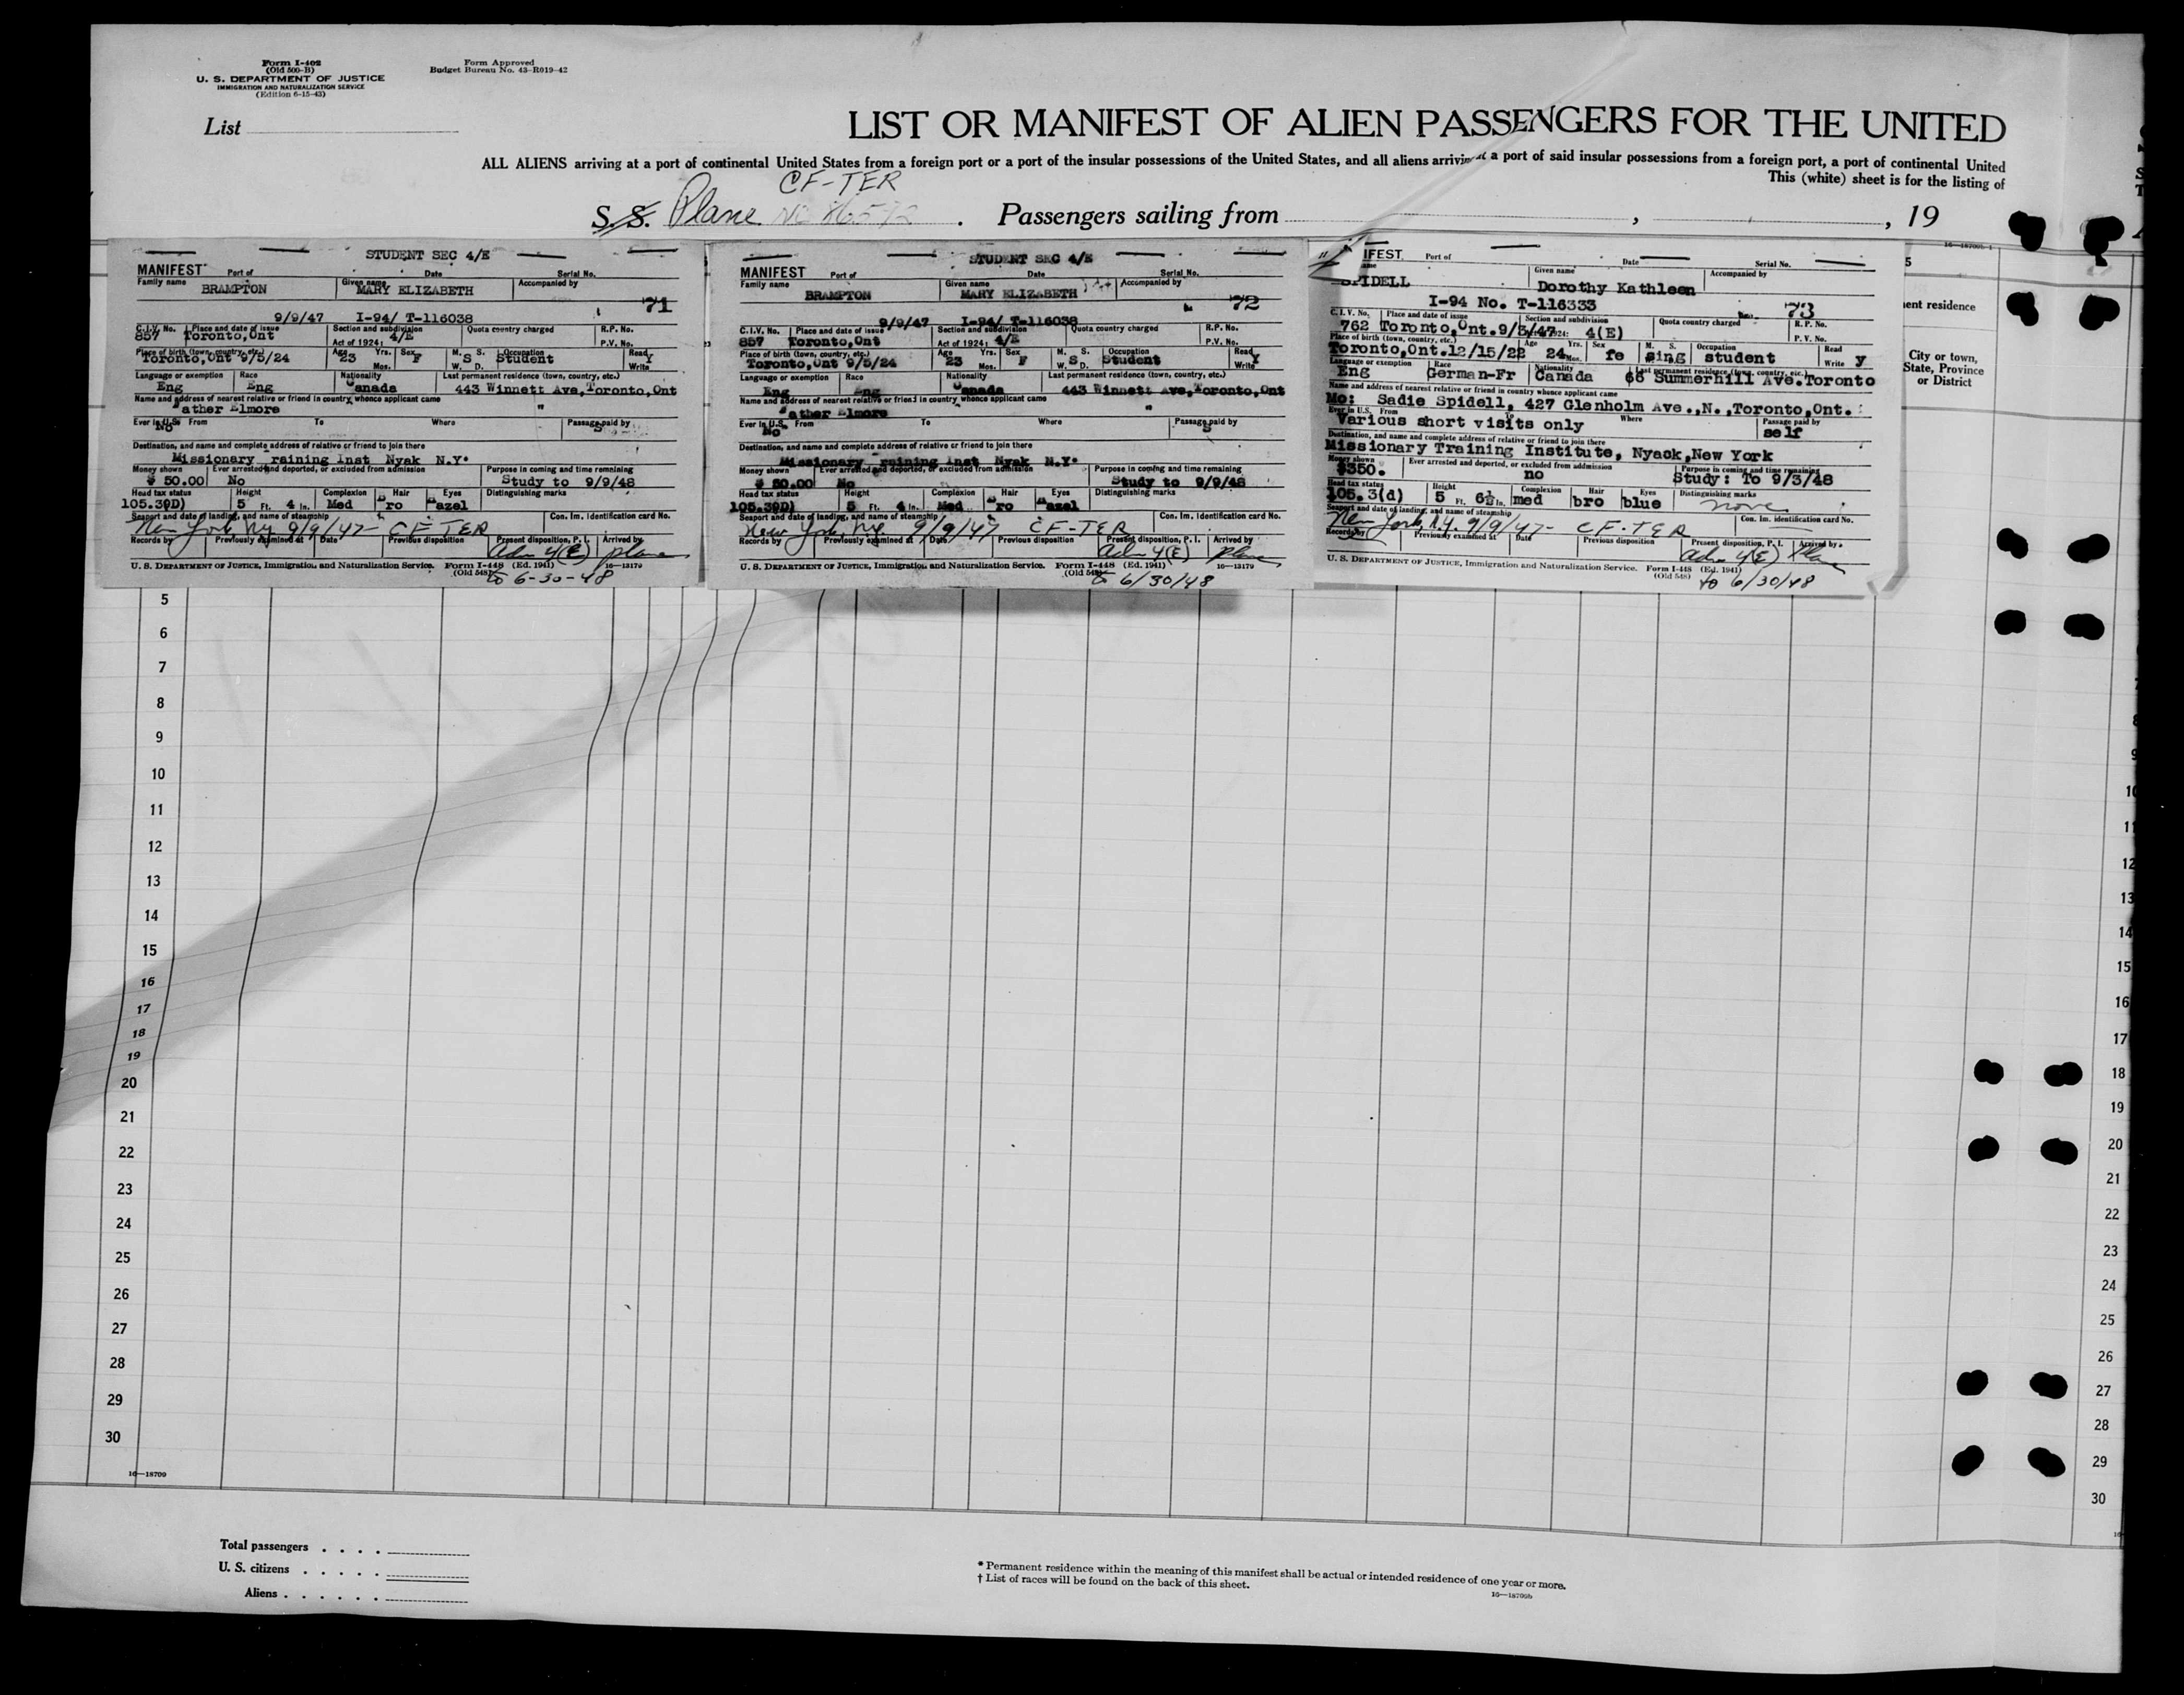 Form I-402
(Old 500-B)
U. S. DEPARTMENT OF JUSTICE
IMMIGRATION AND NATURALIZATION SERVICE
(Edition 6-15-43)
Form Approved
Budget Bureau No. 43-R019-42
List
LIST OR MANIFEST OF ALIEN PASSENGERS FOR THE UNITED
ALL ALIENS arriving at a port of continental United States from a foreign port or a port of the insular possessions of the United States, and all aliens arriving at a port of said insular possessions from a foreign port, a port of continental United
This (white) sheet is for the listing of
CF-TER
S.S. Plane NC 86572 . Passengers sailing from , , 19
STUDENT SEC 4/E
MANIFEST Port of Date Serial No.
Family name Given name Accompanied by
BRAMPTON MARY ELIZABETH
71
9/9/47 I-94/ T-116038
C.I.V. No. Place and date of issue Section and subdivision Quota country charged R.P. No.
857 Toronto,Ont Act of 1924: 4/E P.V. No.
Place of birth (town, country, etc.) Age Yrs. Sex M. S. Occupation Read
Toronto,Ont 9/5/24 23 Mos. F W. S D. Student Write Y
Language or exemption Race Nationality Last permanent residence (town, country, etc.)
Eng Eng Canada 443 Winnett Ave,Toronto,Ont
Name and address of nearest relative or friend in country whence applicant came
ather Elmore "
Ever in U.S. From To Where Passage paid by
No S
Destination, and name and complete address of relative or friend to join there
Missionary raining Inst Nyak N.Y.
Money shown Ever arrested and deported, or excluded from admission Purpose in coming and time remaining
$ 50.00 No Study to 9/9/48
Head tax status Height Complexion Hair Eyes Distinguishing marks
105.39D) 5 Ft. 4 In. Med Bro Hazel
Seaport and date of landing, and name of steamship Con. Im. Identification card No.
New York Ny 9/9/47- CF TER
Records by Previously examined at Date Previous disposition Present disposition, P. I. Arrived by
Adm 4(E) plane
U. S. DEPARTMENT OF JUSTICE, Immigration and Naturalization Service. Form I-448 (Ed. 1941) 16-13179
(Old 548)
to 6-30-48
STUDENT SEC 4/E
MANIFEST Port of Date Serial No.
Family name Given name Accompanied by
BRAMPTON MARY ELIZABETH
72
9/9/47 I-94/ T-116038
C.I.V. No. Place and date of issue Section and subdivision Quota country charged R.P. No.
857 Toronto,Ont Act of 1924: 4/E P.V. No.
Place of birth (town, country, etc.) Age Yrs. Sex M. S. Occupation Read
Toronto,Ont 9/5/24 23 Mos. F W. S. D. Student Write Y
Language or exemption Race Nationality Last permanent residence (town, country, etc.)
Eng Eng Canada 443 Winnett Ave,Toronto,Ont
Name and address of nearest relative or friend in country whence applicant came
ather Elmore "
Ever in U.S. From To Where Passage paid by
No S
Destination, and name and complete address of relative or friend to join there
Missionary raining Inst Nyak N.Y.
Money shown Ever arrested and deported, or excluded from admission Purpose in coming and time remaining
$ 50.00 No Study to 9/9/48
Head tax status Height Complexion Hair Eyes Distinguishing marks
105.39D) 5 Ft. 4 In. Med Bro Hazel
Seaport and date of landing, and name of steamship Con. Im. Identification card No.
New York, Ny 9/9/47 CF-TER
Records by Previously examined at Date Previous disposition Present disposition, P. I. Arrived by
Adm 4(E) plane
U. S. DEPARTMENT OF JUSTICE, Immigration and Naturalization Service. Form I-448 (Ed. 1941) 16-13179
(Old 548)
to 6/30/48
IFEST Port of Date Serial No.
ame Given name Accompanied by
SPIDELL Dorothy Kathleen
I-94 No. T-116333 73
C.I.V. No. Place and date of issue Section and subdivision Quota country charged R.P. No.
762 Toronto,Ont.9/3/47 1924: 4(E) P.V. No.
Place of birth (town, country, etc.) Age Yrs. Sex M. S. Occupation Read
Toronto,Ont.12/15/22 24 Mos. fe sing student Write y
Language or exemption Race Nationality Last permanent residence (town, country, etc.)
Eng German-Fr Canada 66 Summerhill Ave.Toronto
Name and address of nearest relative or friend in country whence applicant came
Mo: Sadie Spidell, 427 Glenholm Ave.,N.,Toronto,Ont.
Ever in U.S. From To Where Passage paid by
Various short visits only self
Destination, and name and complete address of relative or friend to join there
Missionary Training Institute, Nyack,New York
Money shown Ever arrested and deported, or excluded from admission Purpose in coming and time remaining
$350. no Study: To 9/3/48
Head tax status Height Complexion Hair Eyes Distinguishing marks
105.3(d) 5 Ft. 6½ In. med bro blue none
Seaport and date of landing, and name of steamship Con. Im. identification card No.
New York, N.Y. 9/9/47- CF-TER
Records by Previously examined at Date Previous disposition Present disposition, P. I. Arrived by
Adm 4(E)
U. S. DEPARTMENT OF JUSTICE, Immigration and Naturalization Service. Form I-448 (Ed. 1941)
(Old 548)
to 6/30/48
5
ent residence
City or town,
State, Province
or District
5
6
7
8
9
10
11
12
13
14
15
16
17
18
19
20
21
22
23
24
25
26
27
28
29
30
16—18709
10
11
12
13
14
15
16
17
18
19
20
21
22
23
24
25
26
27
28
29
30
Total passengers . . . .
U. S. citizens . . . . .
Aliens . . . . . .
* Permanent residence within the meaning of this manifest shall be actual or intended residence of one year or more.
† List of races will be found on the back of this sheet.
16—18709b